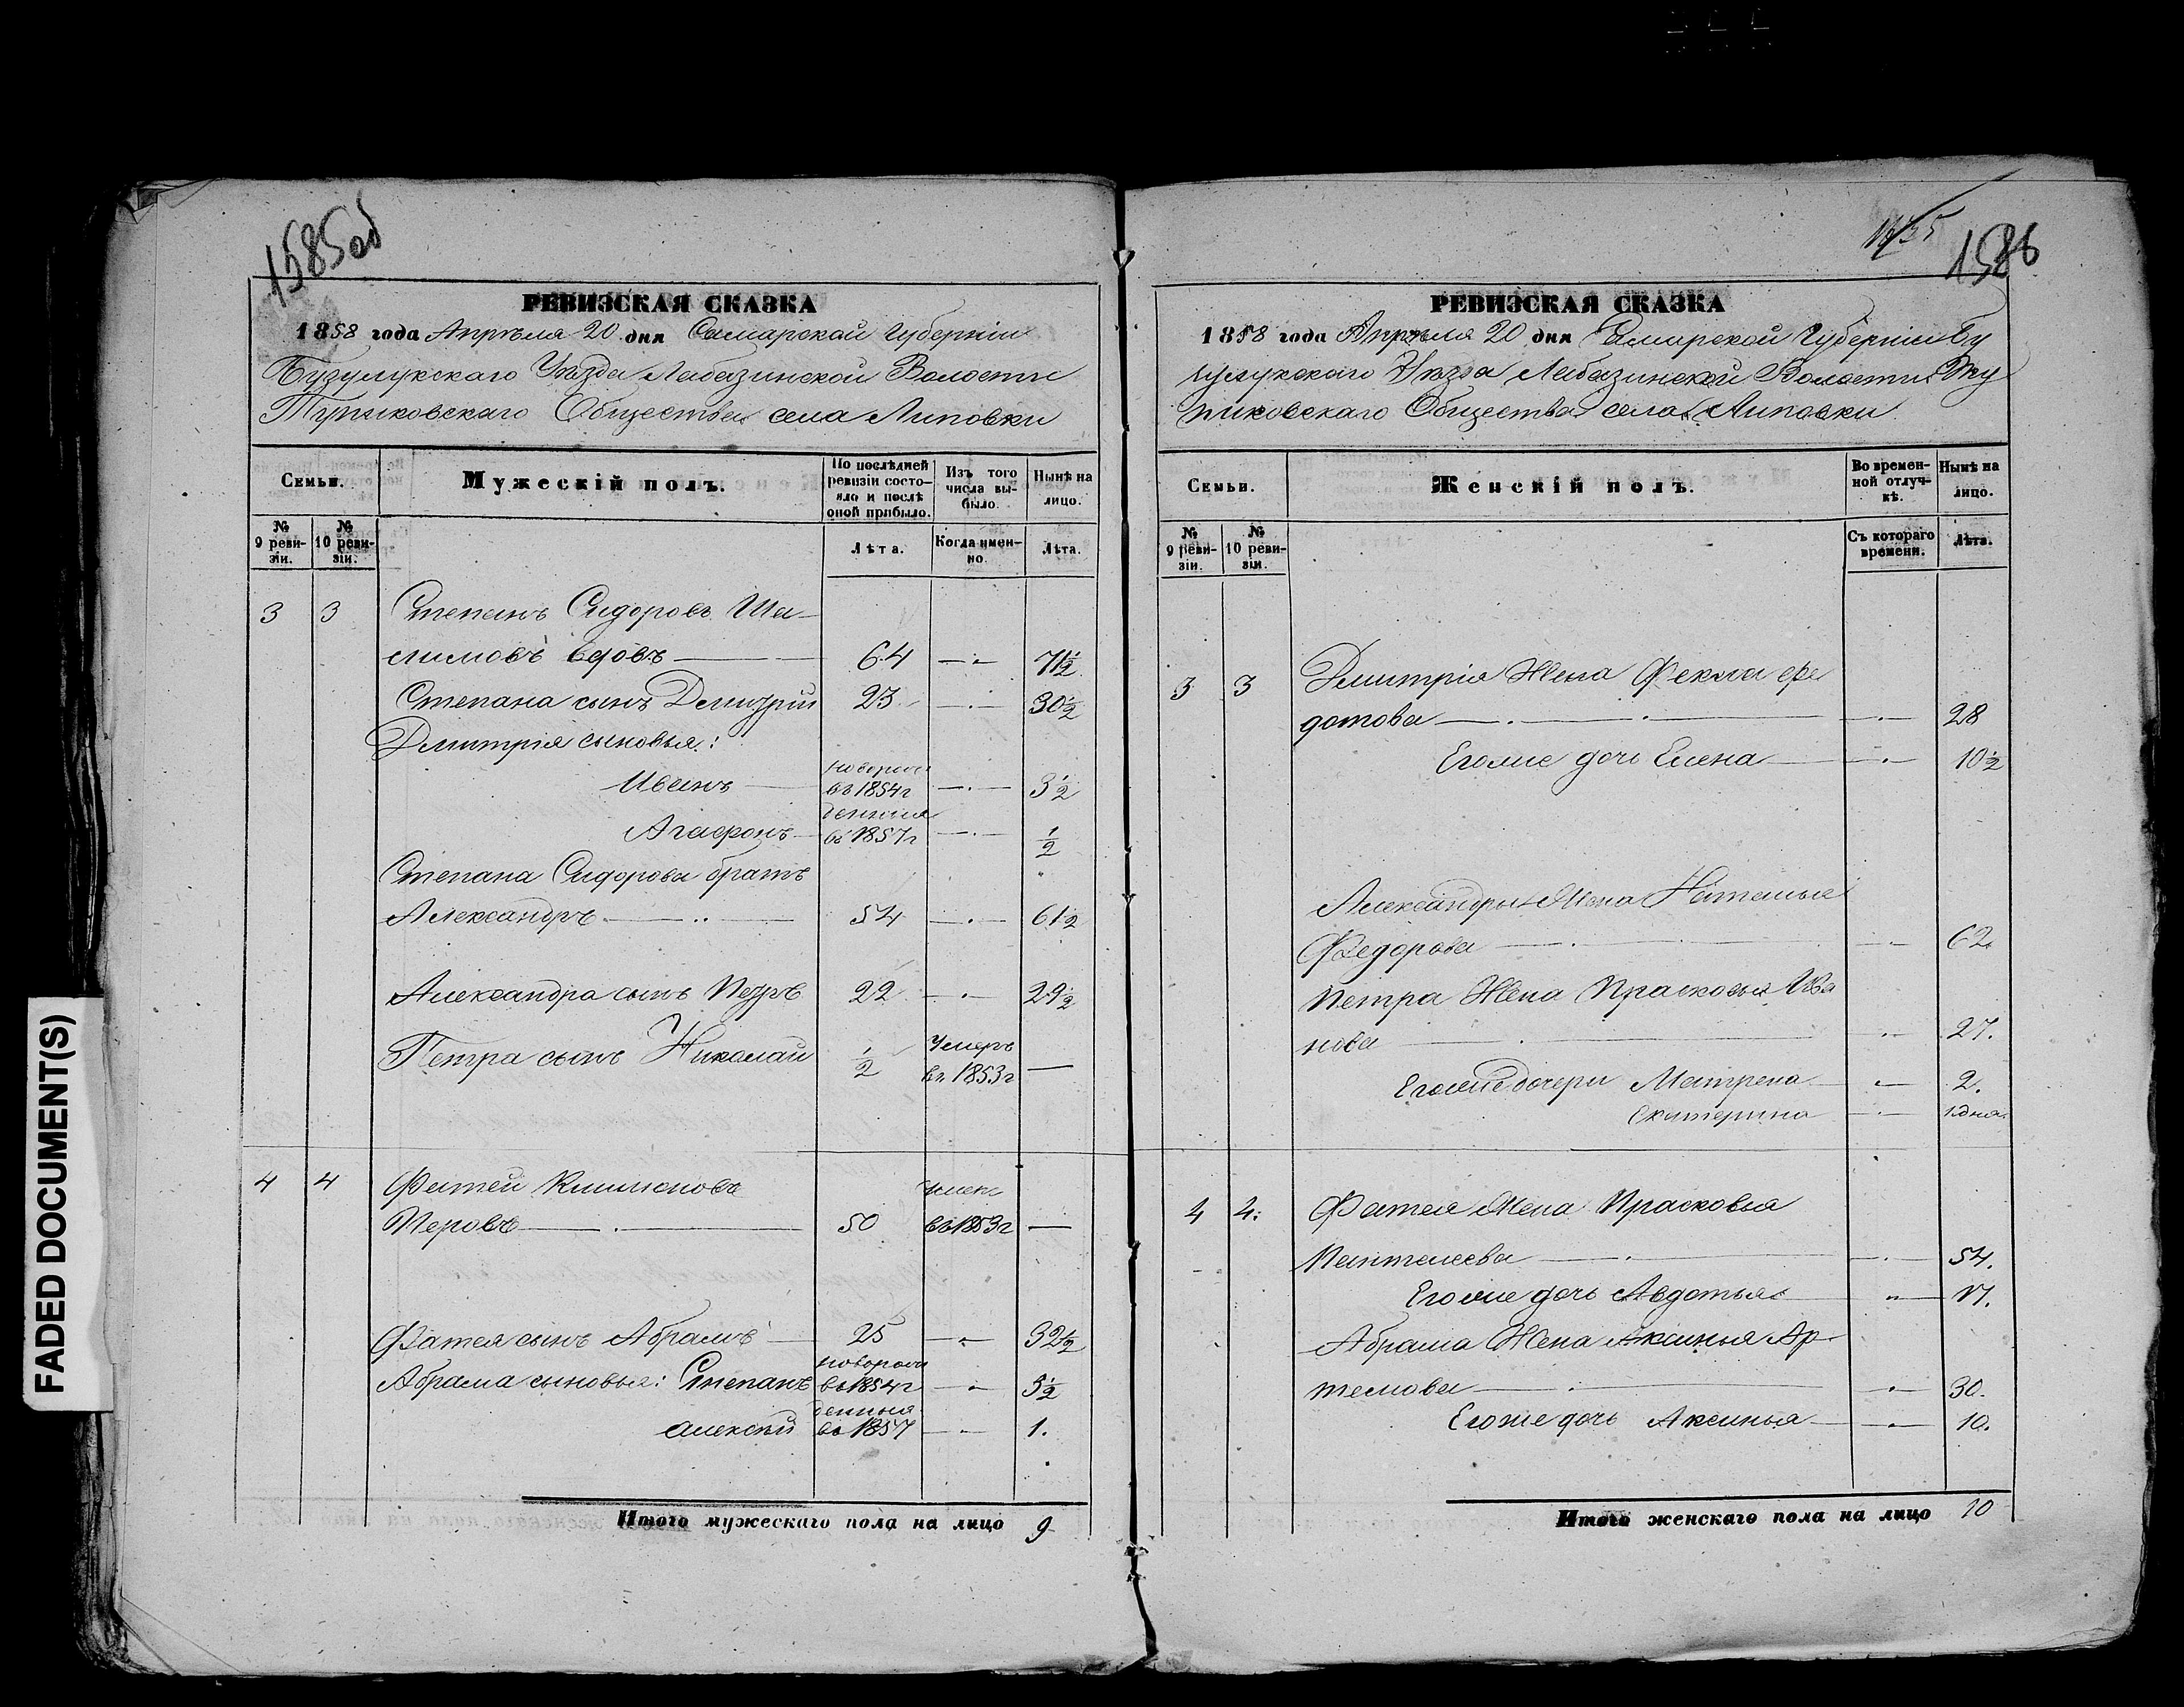 1585об
РЕВИЗСКАЯ СКАЗКА
1858 года Апрѣля 20 дня Самарской Губерніи
Бузулукскаго Уѣзда Лабазинской Волости
Общества села Липовки
Семьи.
Мужескій полъ.
По послѣдней ревизіи состояло и послѣ оной прибыло.
Изъ того числа выбыло.
Нынѣ на лицо.
№ 9 ревизіи.
№ 10 ревизіи.
Лѣта.
Когда именно.
Лѣта.
3 3 Степанъ Сидоровъ Ша-
лимовъ вдовъ 64 71½
Степана сынъ Дмитрій 23 30½
Дмитрія сыновья:
Иванъ новорож въ 1854г 3½
Агафонъ денныя въ 1857г ½
Степана Сидорова братъ
Александръ 54 61½
Александра сынъ Петръ 22 29½
Петра сынъ Николай ½ Умеръ въ 1853г —
4 4 Фатей
Перовъ 50 въ 1853г —
Фатея сынъ Абрамъ 25 32½
Абрама сыновья: Степанъ новорож въ 1854г 3½
Алексѣй денныя въ 1857 1.
Итого мужескаго пола на лицо 9
1586
РЕВИЗСКАЯ СКАЗКА
1858 года Апрѣля 20 дня Самарской Губерніи Бу
зулукскаго Уѣзда Лабазинской Волости
Общества села Липовки
Семьи.
Женскій полъ.
Во временной отлучкѣ.
Нынѣ на лицо.
№ 9 ревизіи.
№ 10 ревизіи.
Съ котораго времени.
Лѣта.
3 3 Дмитрія Жена Фекла Фе
дотова 28
Егоже дочь Елена 10½
Александры Жена Наталья
Федорова 62.
Петра Жена Прасковья Ива
нова 27.
Егоже дочери Матрена 2.
Екатерина 1 дня.
4 4. Фатея Жена Прасковья
Пантелеева 54.
Егоже дочь Авдотья 17.
Абрама Жена Аксинья Ар-
темова 30.
Егоже дочь Аксинья 10.
Итого женскаго пола на лицо 10
FADED DOCUMENT(S)